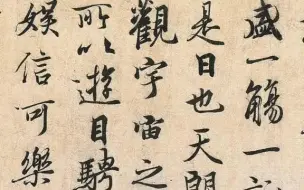 盛一觴一
是日也天朗
觀宇宙之
所以遊目騁
娛信可樂